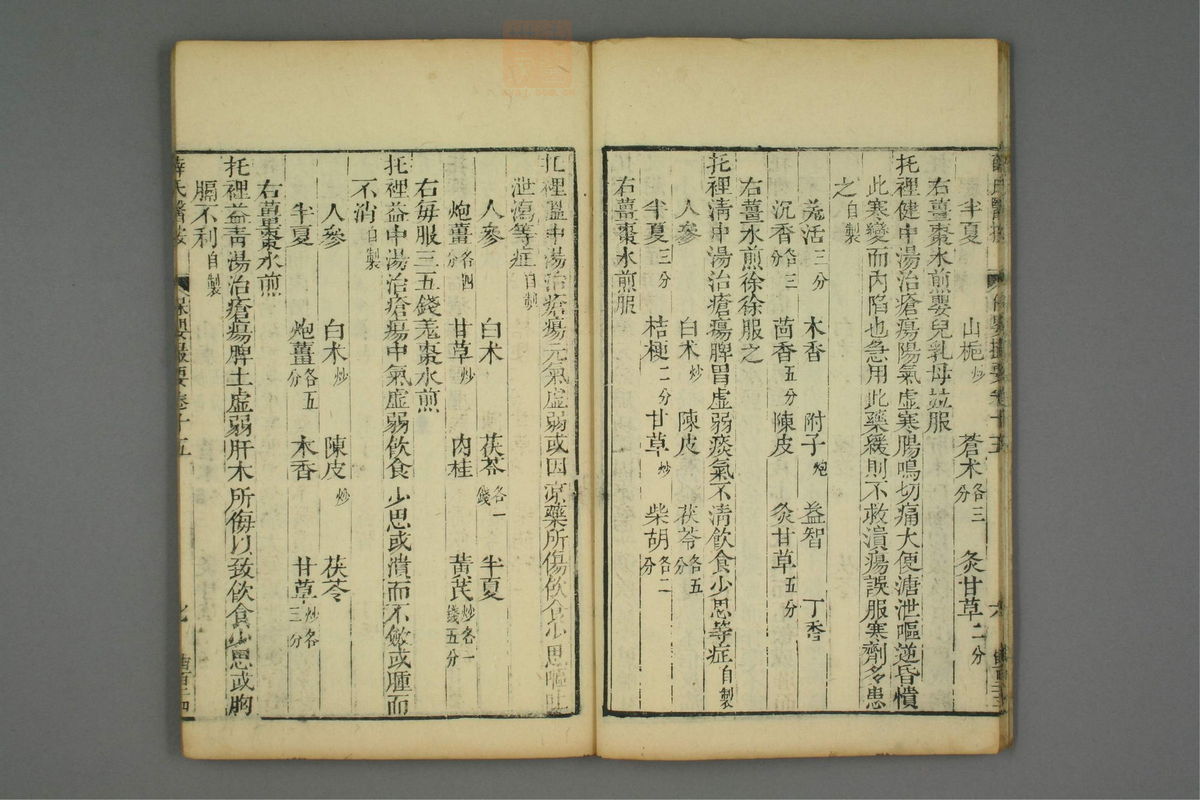 半夏 山梔炒 蒼朮各三分 炙甘草二分
右薑棗水煎嬰兒乳母並服
托裡健中湯治瘡瘍陽氣虛寒腸鳴切痛大便溏泄嘔逆昏憒
此寒變而內陷也急用此藥緩則不救潰瘍誤服寒劑多患
之自製
羗活三分 木香 附子炮 益智 丁香
沉香各三分 茴香五分 陳皮 炙甘草五分
右薑水煎徐徐服之
托裡清中湯治瘡瘍脾胃虛弱痰氣不清飲食少思等症自製
人參 白朮炒 陳皮 茯苓各五分
半夏三分 桔梗二分 甘草炒 柴胡各二分
右薑棗水煎服
托裡溫中湯治瘡瘍元氣虛弱或因涼藥所傷飲食少思嘔吐
泄瀉等症自製
人參 白朮 茯苓各一錢 半夏
炮薑各四分 甘草炒 肉桂 黃芪炒各一錢五分
右每服三五錢羗棗水煎
托裡益中湯治瘡瘍中氣虛弱飲食少思或潰而不斂或腫而
不消自製
人參 白朮炒 陳皮炒 茯苓
半夏 炮薑各五分 木香 甘草炒各三分
右薑棗水煎
托裡益青湯治瘡瘍脾土虛弱肝木所侮以致飲食少思或胸
膈不利自製
薛氏醫按 保嬰撮要卷十五